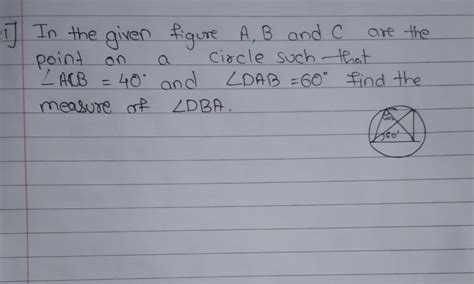 1] In the given figure A, B and C are the
point on a circle such that
∠ACB = 40° and ∠DAB = 60° find the
measure of ∠DBA.
60°